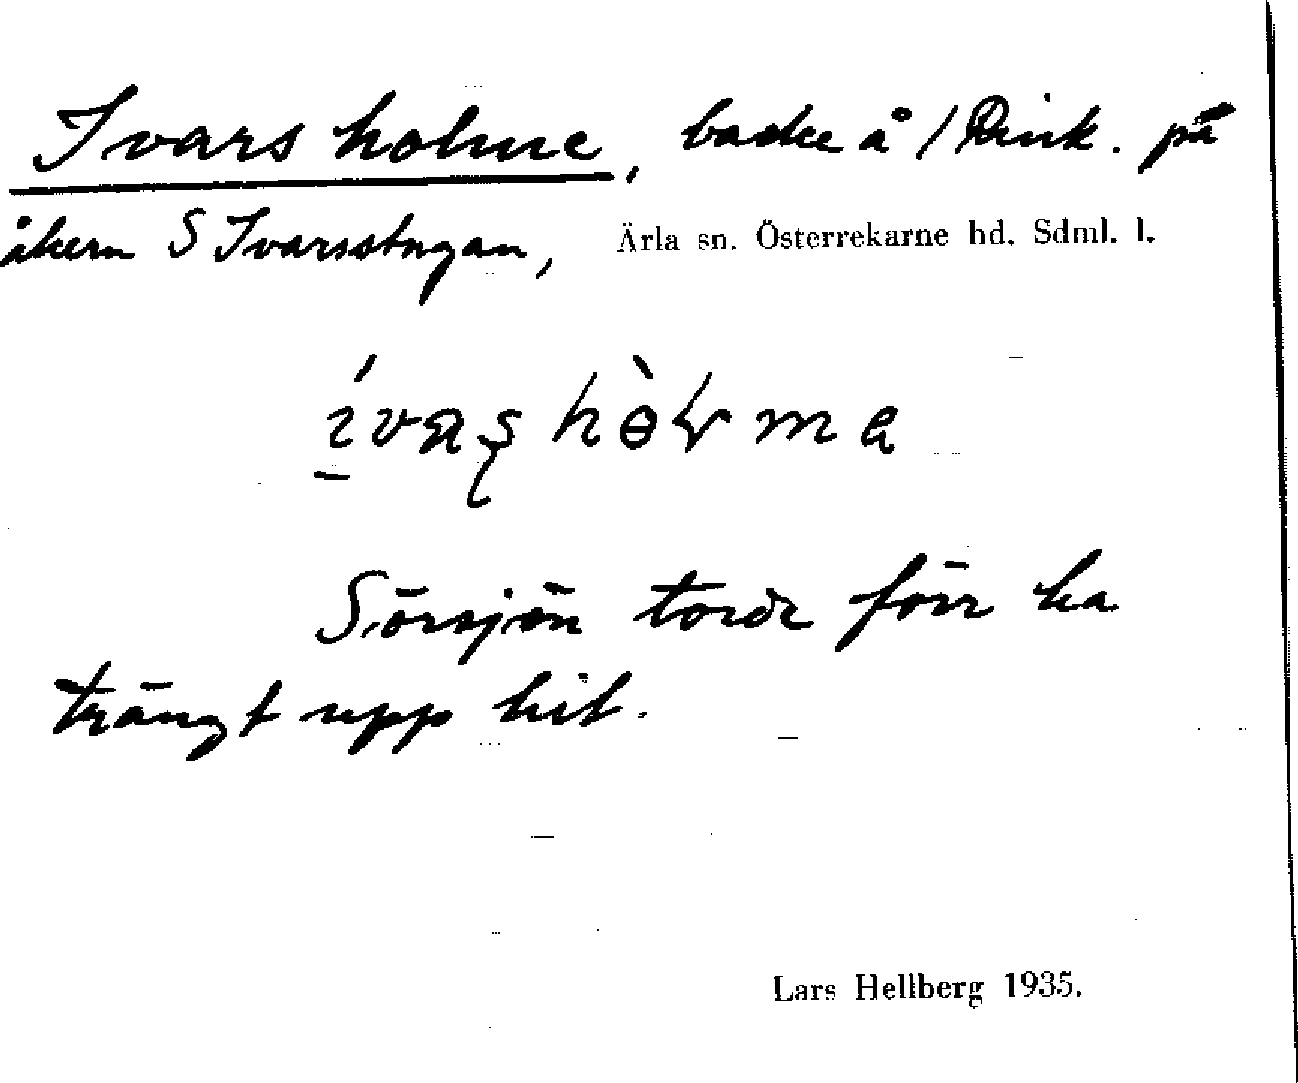 Ivars holme, backe å / Rink. på
åkern S Ivarsstugan, Ärla sn. Österrekarne hd. Sdml. l.
Sörsjön torde förr ha
trängt upp hit.
Lars Hellberg 1935.